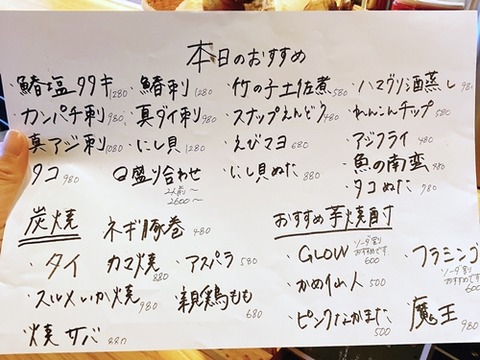 本日のおすすめ
・鰆塩タタキ 1280
・鰆刺 1280
・竹の子土佐煮 580
・ハマグリ酒蒸し 980
・カンパチ刺 980
・真ダイ刺 980
・スナップえんどう 480
・れんこんチップ 580
・真アジ刺 1080
・にし貝 1280
・えびマヨ 680
・アジフライ 480
・タコ 980
盛り合わせ
2人前〜
2600〜
・にし貝ぬた 880
・魚の南蛮 480
・タコぬた 780
炭焼
ネギ豚巻 480
・タイカマ焼 880
・アスパラ 580
・スルメいか焼 980
・親鶏もも 680
・焼サバ 880
おすすめ芋焼酎
・GLOW ソーダ割おすすめです 600
・フラミンゴ ソーダ割おすすめです 600
・かめ仙人 500
・ピンクなかまた 500
・魔王 980